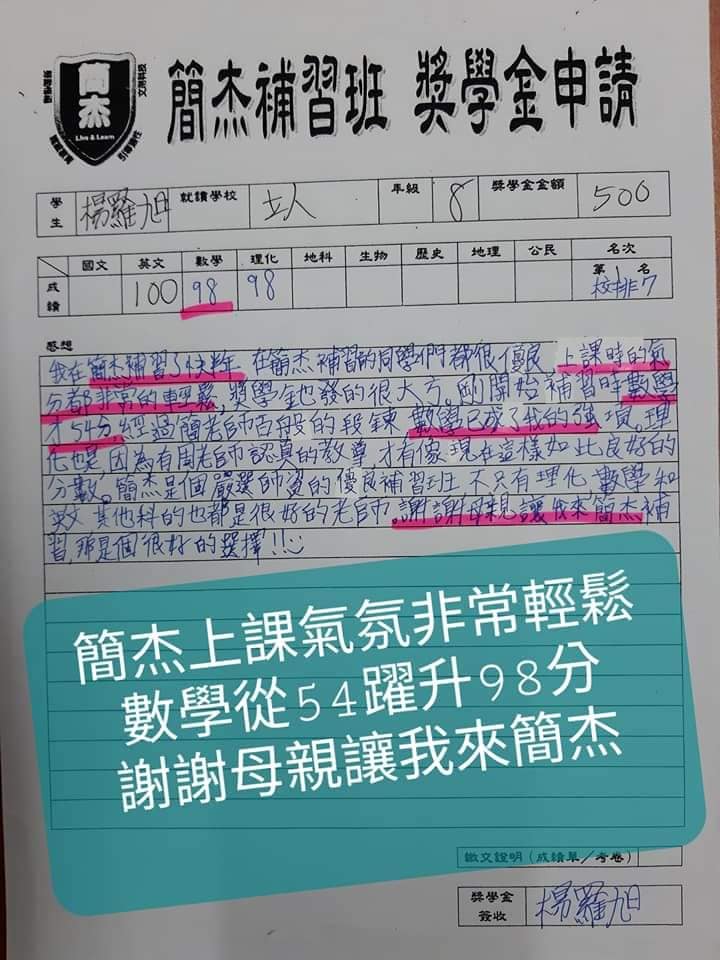 簡杰
Live & Learn
簡杰補習班 獎學金申請
學生 楊羅旭 就讀學校 土人 年級 8 獎學金金額 500
國文 英文 數學 理化 地科 生物 歷史 地理 公民 名次
成績 100 98 98 第1名
校排7
感想
我在簡杰補習了快半年,在簡杰補習的同學們都很優良,上課時的氣
分都非常的輕鬆,獎學金也發的很大方。剛開始補習時數學
才54分,經過簡老師百般的段鍊,數學已成了我的強項。理
化也是,因為有周老師認真的教導,才有像現在這樣如此良好的
分數。簡杰是個嚴選師資的優良補習班,不只有理化 數學和
英文 其他科的也都是很好的老師。謝謝母親讓我來簡杰補
習,那是個很好的選擇!!
簡杰上課氣氛非常輕鬆
數學從54躍升98分
謝謝母親讓我來簡杰
繳交證明(成績單/考卷)
獎學金簽收 楊羅旭